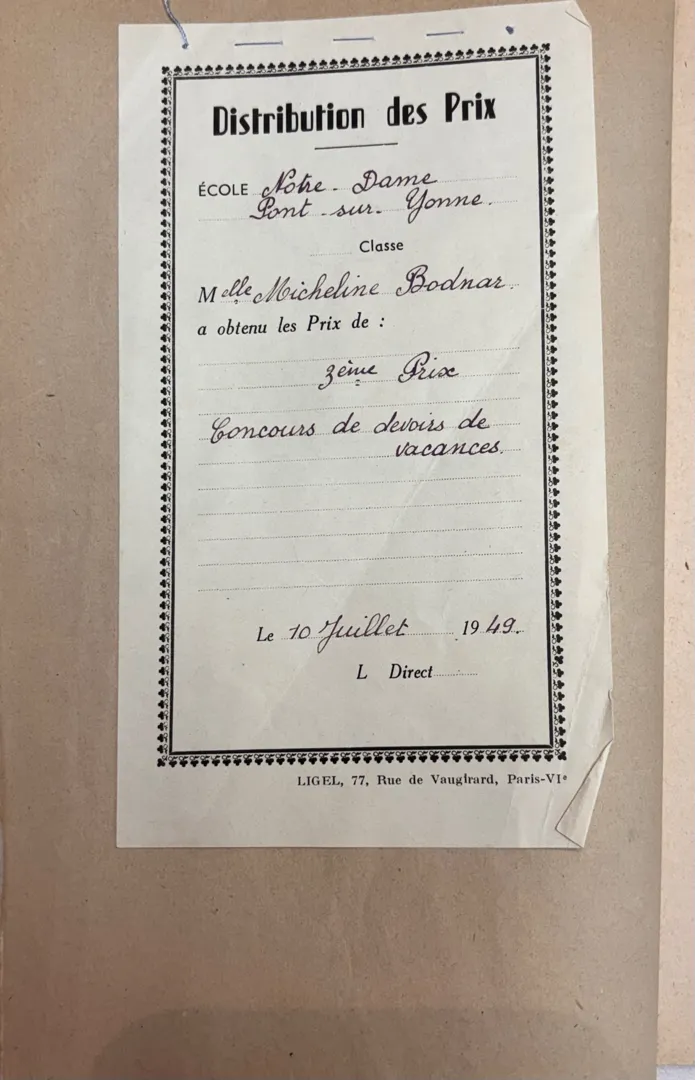 Distribution des Prix
ÉCOLE Notre-Dame
Pont-sur-Yonne.
Classe
Melle Micheline Bodnar.
a obtenu les Prix de :
3ème Prix
Concours de devoirs de
vacances.
Le 10 Juillet 1949.
L Direct
LIGEL, 77, Rue de Vaugirard, Paris-VIe